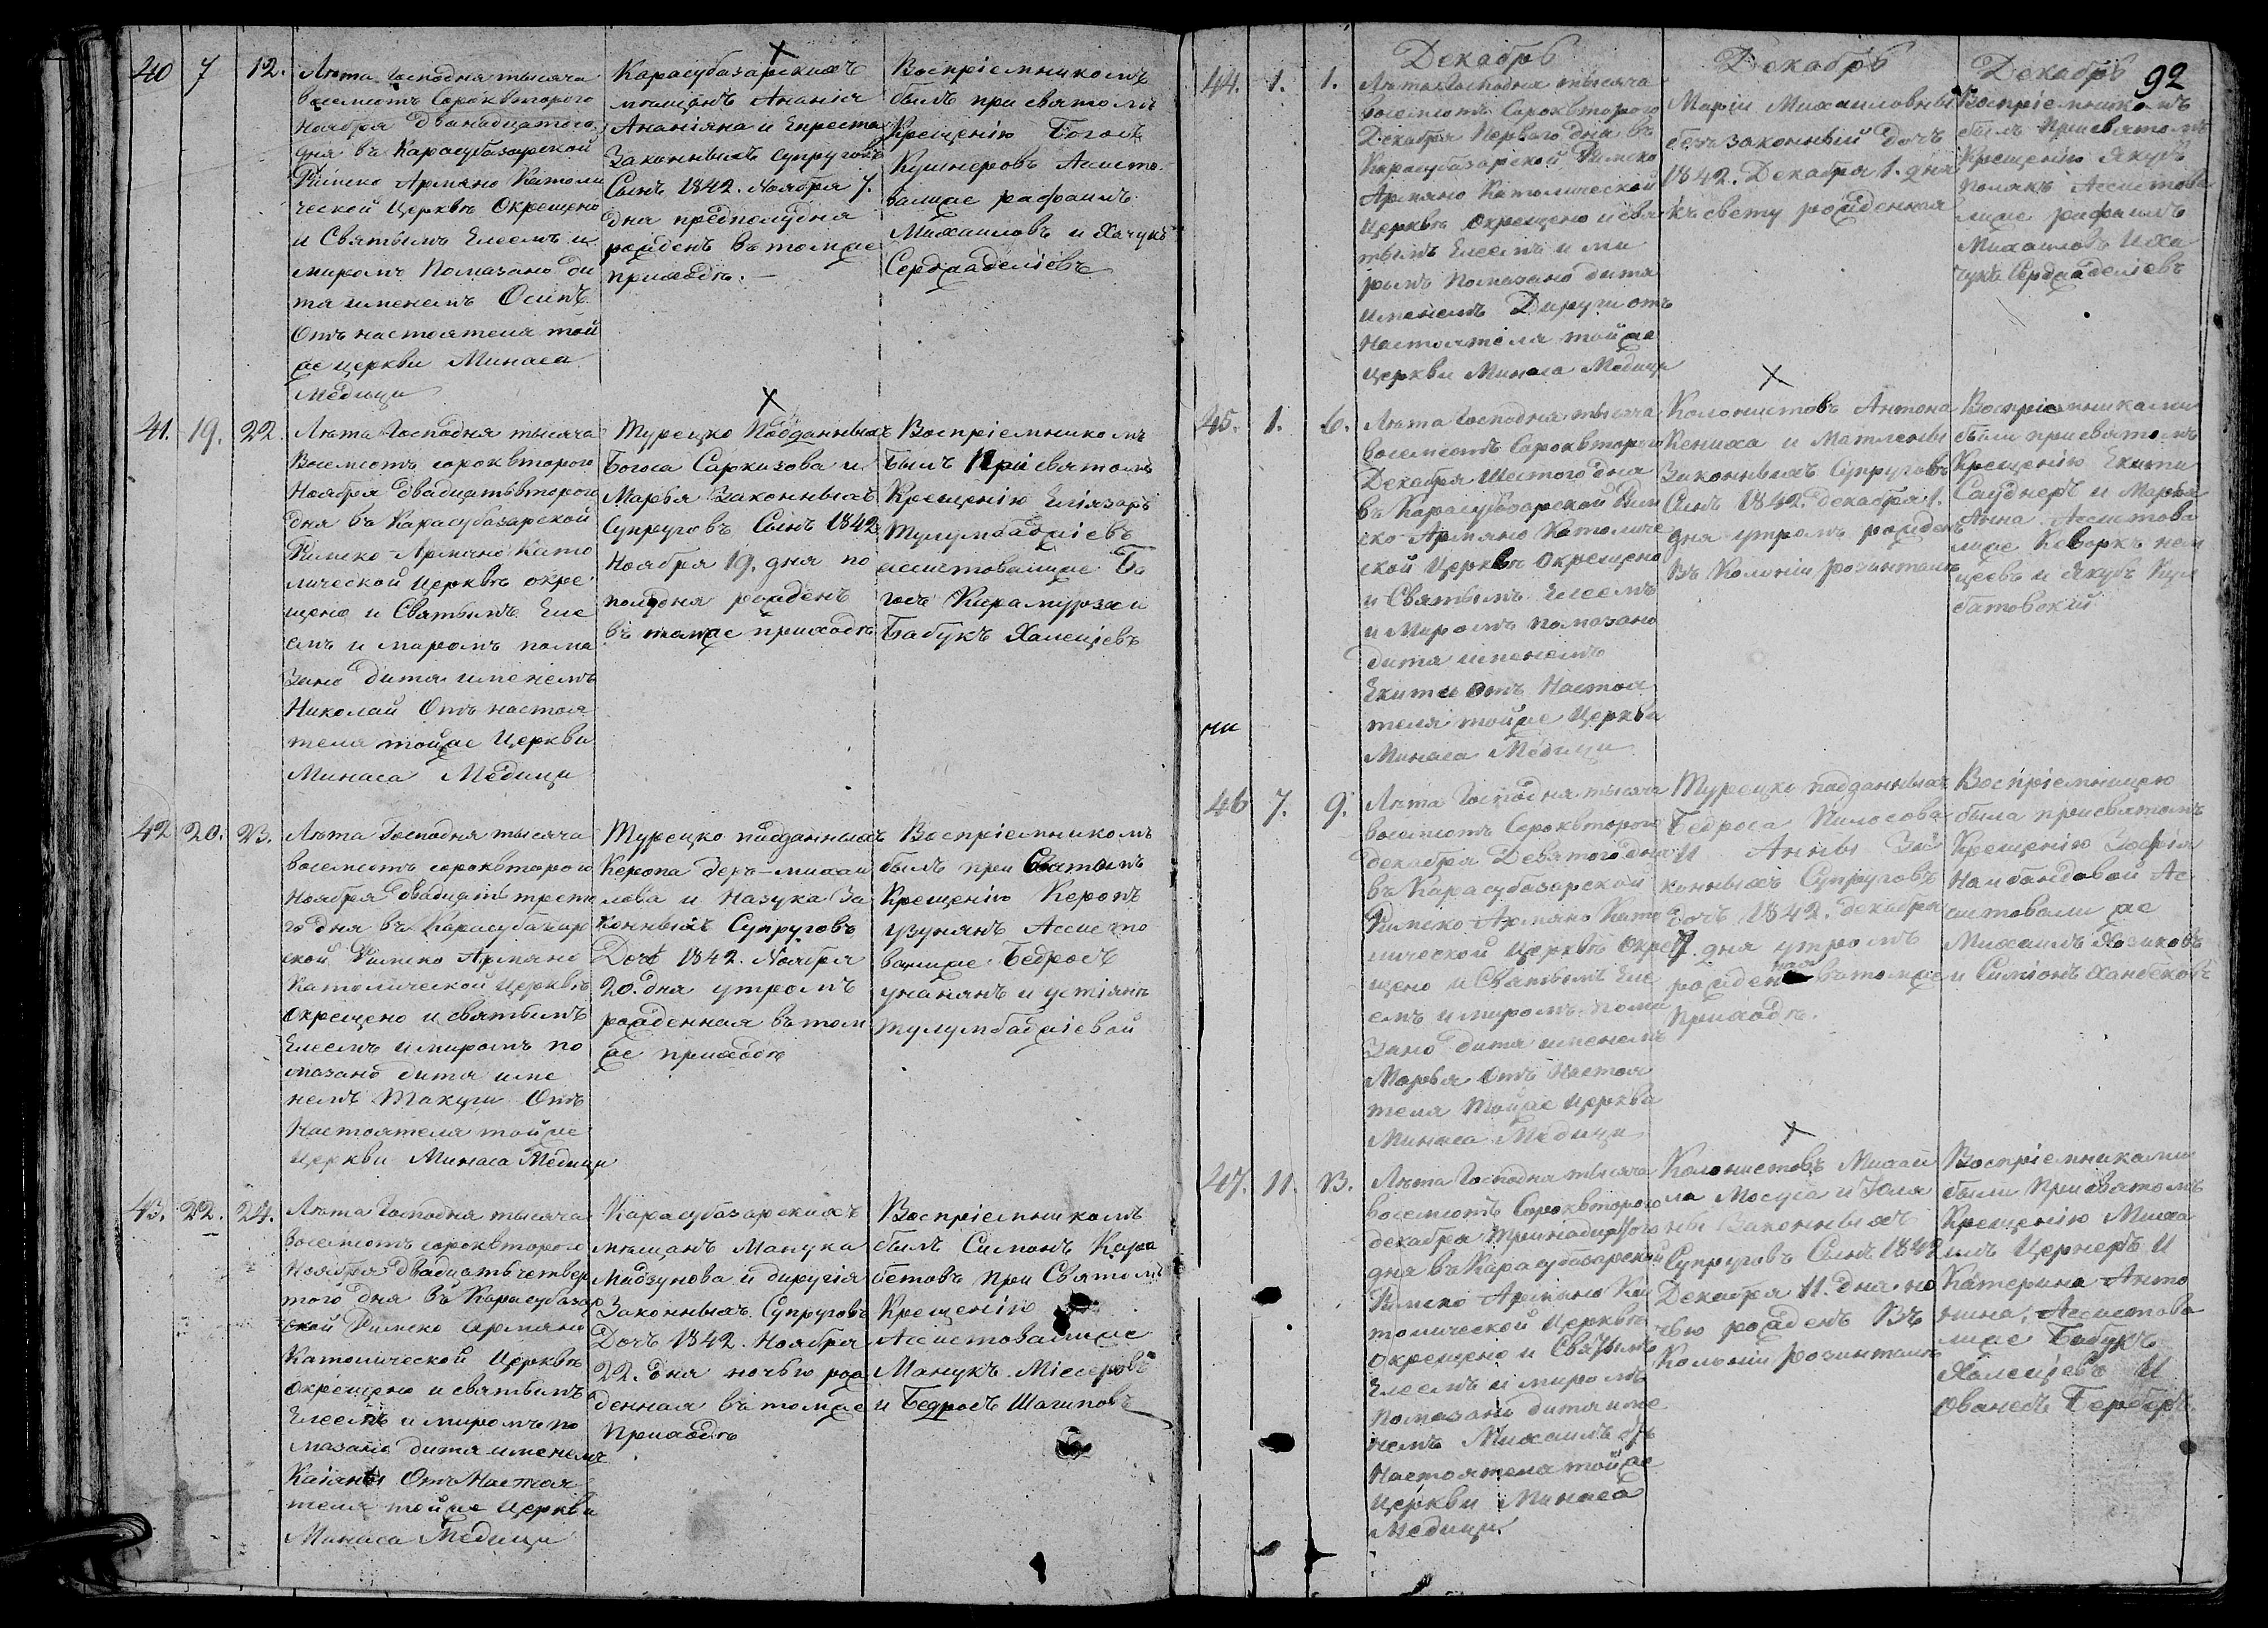 40 7 12.
Лѣта Господня тысяча
восемсотъ Сороквторого
Ноября Дванадцатого
дня въ Карасубазарской
Римско Армяно Католи
ческой Церквѣ Окрещено
и Святымъ Елеемъ и
миромъ Помазано ди
тя именемъ Осипъ
Отъ настоятеля той
же церкви Минаса
Медици
Карасубазарскихъ
мещанъ Ананія
Ананіяна и Екреста
Законныхъ супруговъ
Сынъ 1842. Ноября 7.
дня предполудня
рожденъ въ томже
приходѣ.
Воспріемникомъ
былъ при святомъ
Крещенію Богосъ
Кушнеровъ Ассисто
валиже рафаилъ
Михаиловъ и Хачукъ
41. 19. 22.
Лѣта Господня тысяча
Восемсотъ сороквторого
Ноября двадцатьвторого
дня въ Карасубазарской
Римско-Армяно Като
лической Церквѣ окре
щено и Святымъ Еле
емъ и миромъ пома
зано дитя именемъ
Николай Отъ настоя
теля тойже Церкви
Минаса Медици
Турецко Подданныхъ
Богоса Саркизова и
Марья Законныхъ
Супруговъ Сынъ 1842
Ноября 19. дня по
полудня рожденъ
въ томже приходѣ
Воспріемникомъ
Былъ При святомъ
Крещенію Еліязаръ
Тулумбаджіевъ
ассистовалиже Бо
госъ Карамурза и
Бабукъ Халенціевъ
42 20. 23.
Лѣта Господня тысяча
восемсотъ сороквторого
Ноября двадцатьтреть
го дня въ Карасубазар
ской Римско Армяно
Католической Церквѣ
окрещено и святымъ
Елеемъ и миромъ по
мазано дитя име
немъ Такуги Отъ
Настоятеля тойже
Церкви Минаса Медици
Турецко подданныхъ
Керопа деръ-михаи
лова и Назука За
конныхъ Супруговъ
Дочъ 1842. Ноября
20. дня утромъ
рожденная въ том
же приходѣ
Воспріемникомъ
былъ при Святомъ
Крещенію Керопъ
узунянъ Ассисто
валиже Бедросъ
унанянъ и устіянъ
тулумбаджіевой
43. 22. 24.
Лѣта Господня тысяча
восемсотъ сороквторого
Ноября двадцатьчетвер
того дня въ Карасубазар
ской Римско Армяно
Католической Церквѣ
окрещено и святымъ
Елеемъ и миромъ по
мазано дитя именемъ
Каіяны Отъ Настоя
теля тойже Церкви
Минаса Медици
Карасубазарскихъ
мѣщанъ Манука
Мадзунова и диругія
Законныхъ Супруговъ
Дочъ 1842. Ноября
22. дня ночью рож
денная въ томже
Приходѣ
Воспріемникомъ
былъ Симонъ Кара
бетовъ при Святомъ
Крещенію
Ассистовалиже
Манукъ Міссеровъ
и Бедросъ Шагиновъ
92
Декабрь Декабрь Декабрь
44. 1. 1.
Лѣта Господня тысяча
восемсотъ Сороквторого
Декабря Первого дня въ
Карасубазарской Римско
Армяно Католической
Церквѣ Окрещено и свя
тымъ Елеемъ и ми
ромъ Помазано дитя
Именемъ Дируги отъ
Настоятеля тойже
Церкви Минаса Медици
Маріи Михаиловны
безъзаконный дочъ
1842. Декабря 1. дня
къ свету рожденная
Воспріемникомъ
былъ При святомъ
Крещенію Якубъ
Полякъ Ассистова
лиже рафаилъ
Михаиловъ и Ха
чукъ
45. 1. 6.
Лѣта Господня тысяча
восемсотъ Сороквторого
Декабря Шестого дня
въ Карасубазарской Рим
ско-Армяно Католиче
ской Церквѣ Окрещено
и Святымъ Елеемъ
и Миромъ помазано
дитя именемъ
Екити Отъ Настоя
теля тойже Церкви
Минаса Медици
Колонистовъ Антона
Кениха и Матлены
Законныхъ Супруговъ
Сынъ 1842. декабря 1.
дня утромъ рожденъ
Въ Колоніи розинталъ
Воспріемниками
были при святомъ
Крещенію Екити
Сауднеръ и Марья
Анна Ассистова
лиже Кеворкъ нем
цевъ и Якубъ Кул
батовскій
46 7. 9.
Лѣта Господня тысяча
восемсотъ Сороквторого
декабря Девятого дня
въ Карасубазарской
Римско-Армяно Като
лической Церквѣ Окре
щено и Святымъ Еле
емъ и миромъ пома
зано дитя именемъ
Марья Отъ Настоя
теля Тойже Церкви
Минаса Медици
Турецко подданныхъ
Бедроса Пилосова
и Анны За
конныхъ Супруговъ
Дочъ 1842. декабря
7. дня утромъ
рожденная въ томже
Приходѣ.
Воспріемницею
была при святомъ
Крещенію Зофія
Налбандовой Ас
систовали же
Михаилъ Хозиковъ
и Симіонъ Ханбековъ
47. 11. 13.
Лѣта Господня тысяча
восемсотъ Сороквторого
декабря Тринадцатого
дня въ Карасубазарской
Римско Армяно Ка
толической Церквѣ
окрещено и Святымъ
Елеемъ и миромъ
помазано дитя име
немъ Михаилъ Отъ
Настоятеля тойже
Церкви Минаса
Медици.
Колонистовъ Михаи
ла Мосуса и Юлія
ны Законныхъ
Супруговъ Сынъ 1842
Декабря 11. дня но
чью рожденъ Въ
Колоніи розинталъ
Воспріемниками
были При святомъ
Крещенію Миха
илъ Цернеръ И
Катерина Анто
нина, Ассистова
лиже Бабукъ
Халенціевъ И
Ованесъ Берберъ